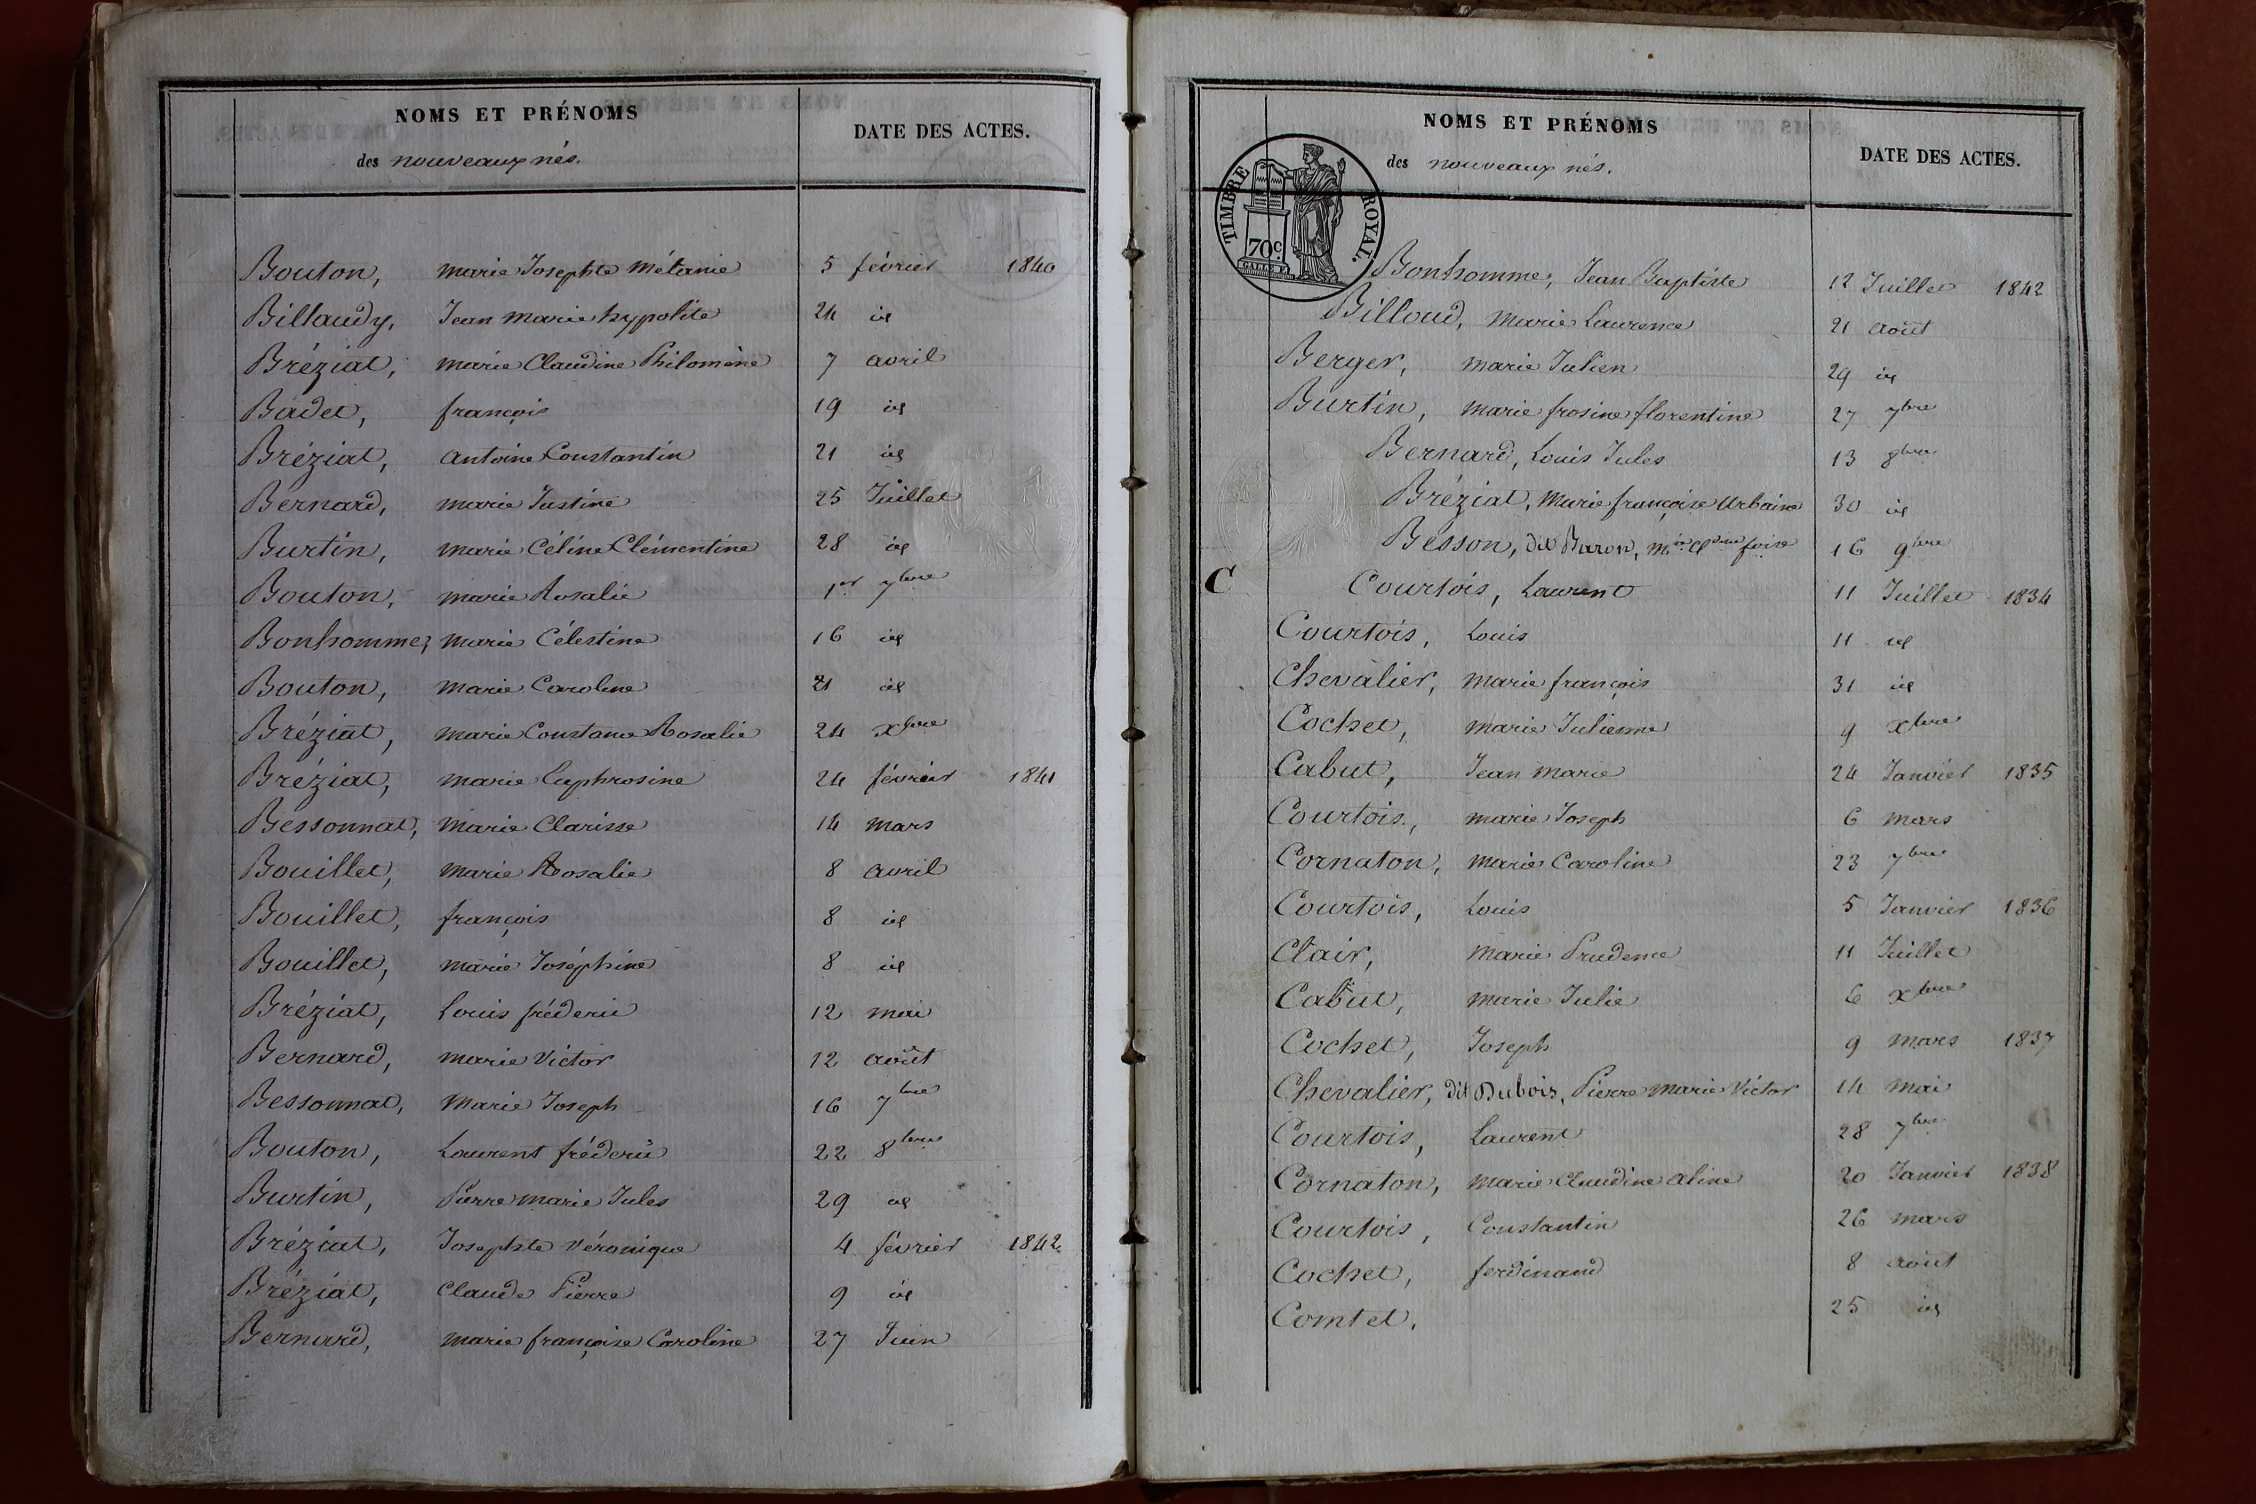 NOMS ET PRÉNOMS
des nouveaux nés.
DATE DES ACTES.
Bouton, marie Josephte Mélanie 5 février 1840
Billaudy, Jean Marie hypolite 24 id
Bréziat, marie Claudine Philomène 7 avril
Badet, françois 19 id
Bréziat, antoine Constantin 21 id
Bernard, marie Justine 25 Juillet
Burtin, marie Céline Clémentine 28 id
Bouton, marie Rosalie 1er 7bre
Bonhomme, marie Célestine 16 id
Bouton, marie Caroline 21 id
Bréziat, marie Constance Rosalie 24 xbre
Bréziat, marie Euphrosine 24 février 1841
Bessonnat, Marie Clarisse 14 mars
Bouillet, marie Rosalie 8 avril
Bouillet, françois 8 id
Bouillet, marie Joséphine 8 id
Bréziat, Louis fréderic 12 mai
Bernard, marie Victor 12 août
Bessonnat, Marie Joseph 16 7bre
Bouton, Laurent fréderic 22 8bre
Burtin, Pierre marie Jules 29 id
Bréziat, Josephte Véronique 4 février 1842
Bréziat, Claude Pierre 9 id
Bernard, marie françoise Caroline 27 Juin
NOMS ET PRÉNOMS
des nouveaux nés.
DATE DES ACTES.
TIMBRE ROYAL.
70c
Bonhomme, Jean Baptiste 12 Juillet 1842
Billoud, Marie Laurence 21 août
Berger, marie Julien 29 id
Burtin, marie frosine florentine 27 7bre
Bernard, Louis Jules 13 8bre
Bréziat, Marie françoise Urbaine 30 id
Besson, dit Baron, 16 9bre
C
Courtois, Laurent 11 Juillet 1834
Courtois, Louis 11 id
Chevalier, marie françois 31 id
Cochet, marie Julienne 9 xbre
Cabut, Jean marie 24 Janvier 1835
Courtois, marie Joseph 6 mars
Cornaton, marie Caroline 23 7bre
Courtois, Louis 5 Janvier 1836
Clair, Marie Prudence 11 Juillet
Cabut, marie Julie 6 xbre
Cochet, Joseph 9 mars 1837
Chevalier, dit Dubois, Pierre Marie Victor 14 mai
Courtois, Laurent 28 7bre
Cornaton, marie Claudine aline 20 Janvier 1838
Courtois, Constantin 26 mars
Cochet, ferdinand 8 août
Comtet. 25 id